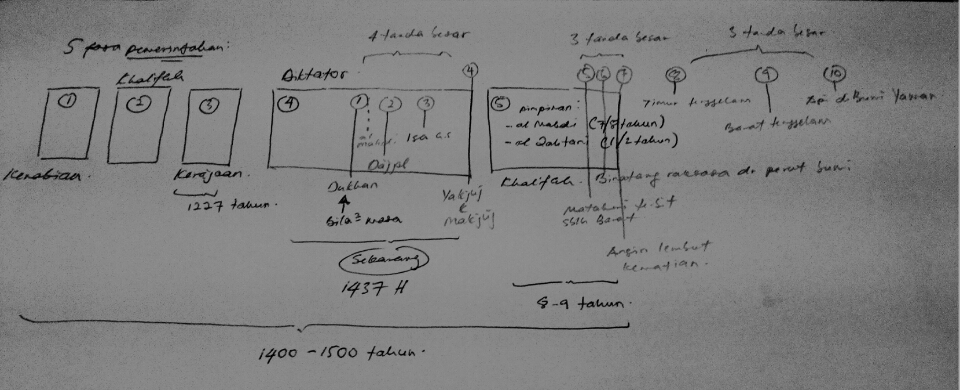 4 tanda besar
3 tanda besar
3 tanda besar
5 fasa pemerintahan:
Khalifah
Diktator
4
5
6
7
8
9
10
1
2
3
4
1
2
3
5
pimpinan:
- al Mahdi (7/8 tahun)
- al Qahtani (1/2 tahun)
Timur tenggelam
Barat tenggelam
Api di Bumi Yaman
al mahdi
Isa a.s
Dajjal
Kenabian.
Kerajaan.
Khalifah.
Binatang raksasa di perut bumi
1227 tahun.
Dukhan
Yakjuj & makjuj
Bila² masa
Matahari
sblh Barat
Angin lembut
kematian.
Sekarang
1437 H
8-9 tahun.
1400 - 1500 tahun.